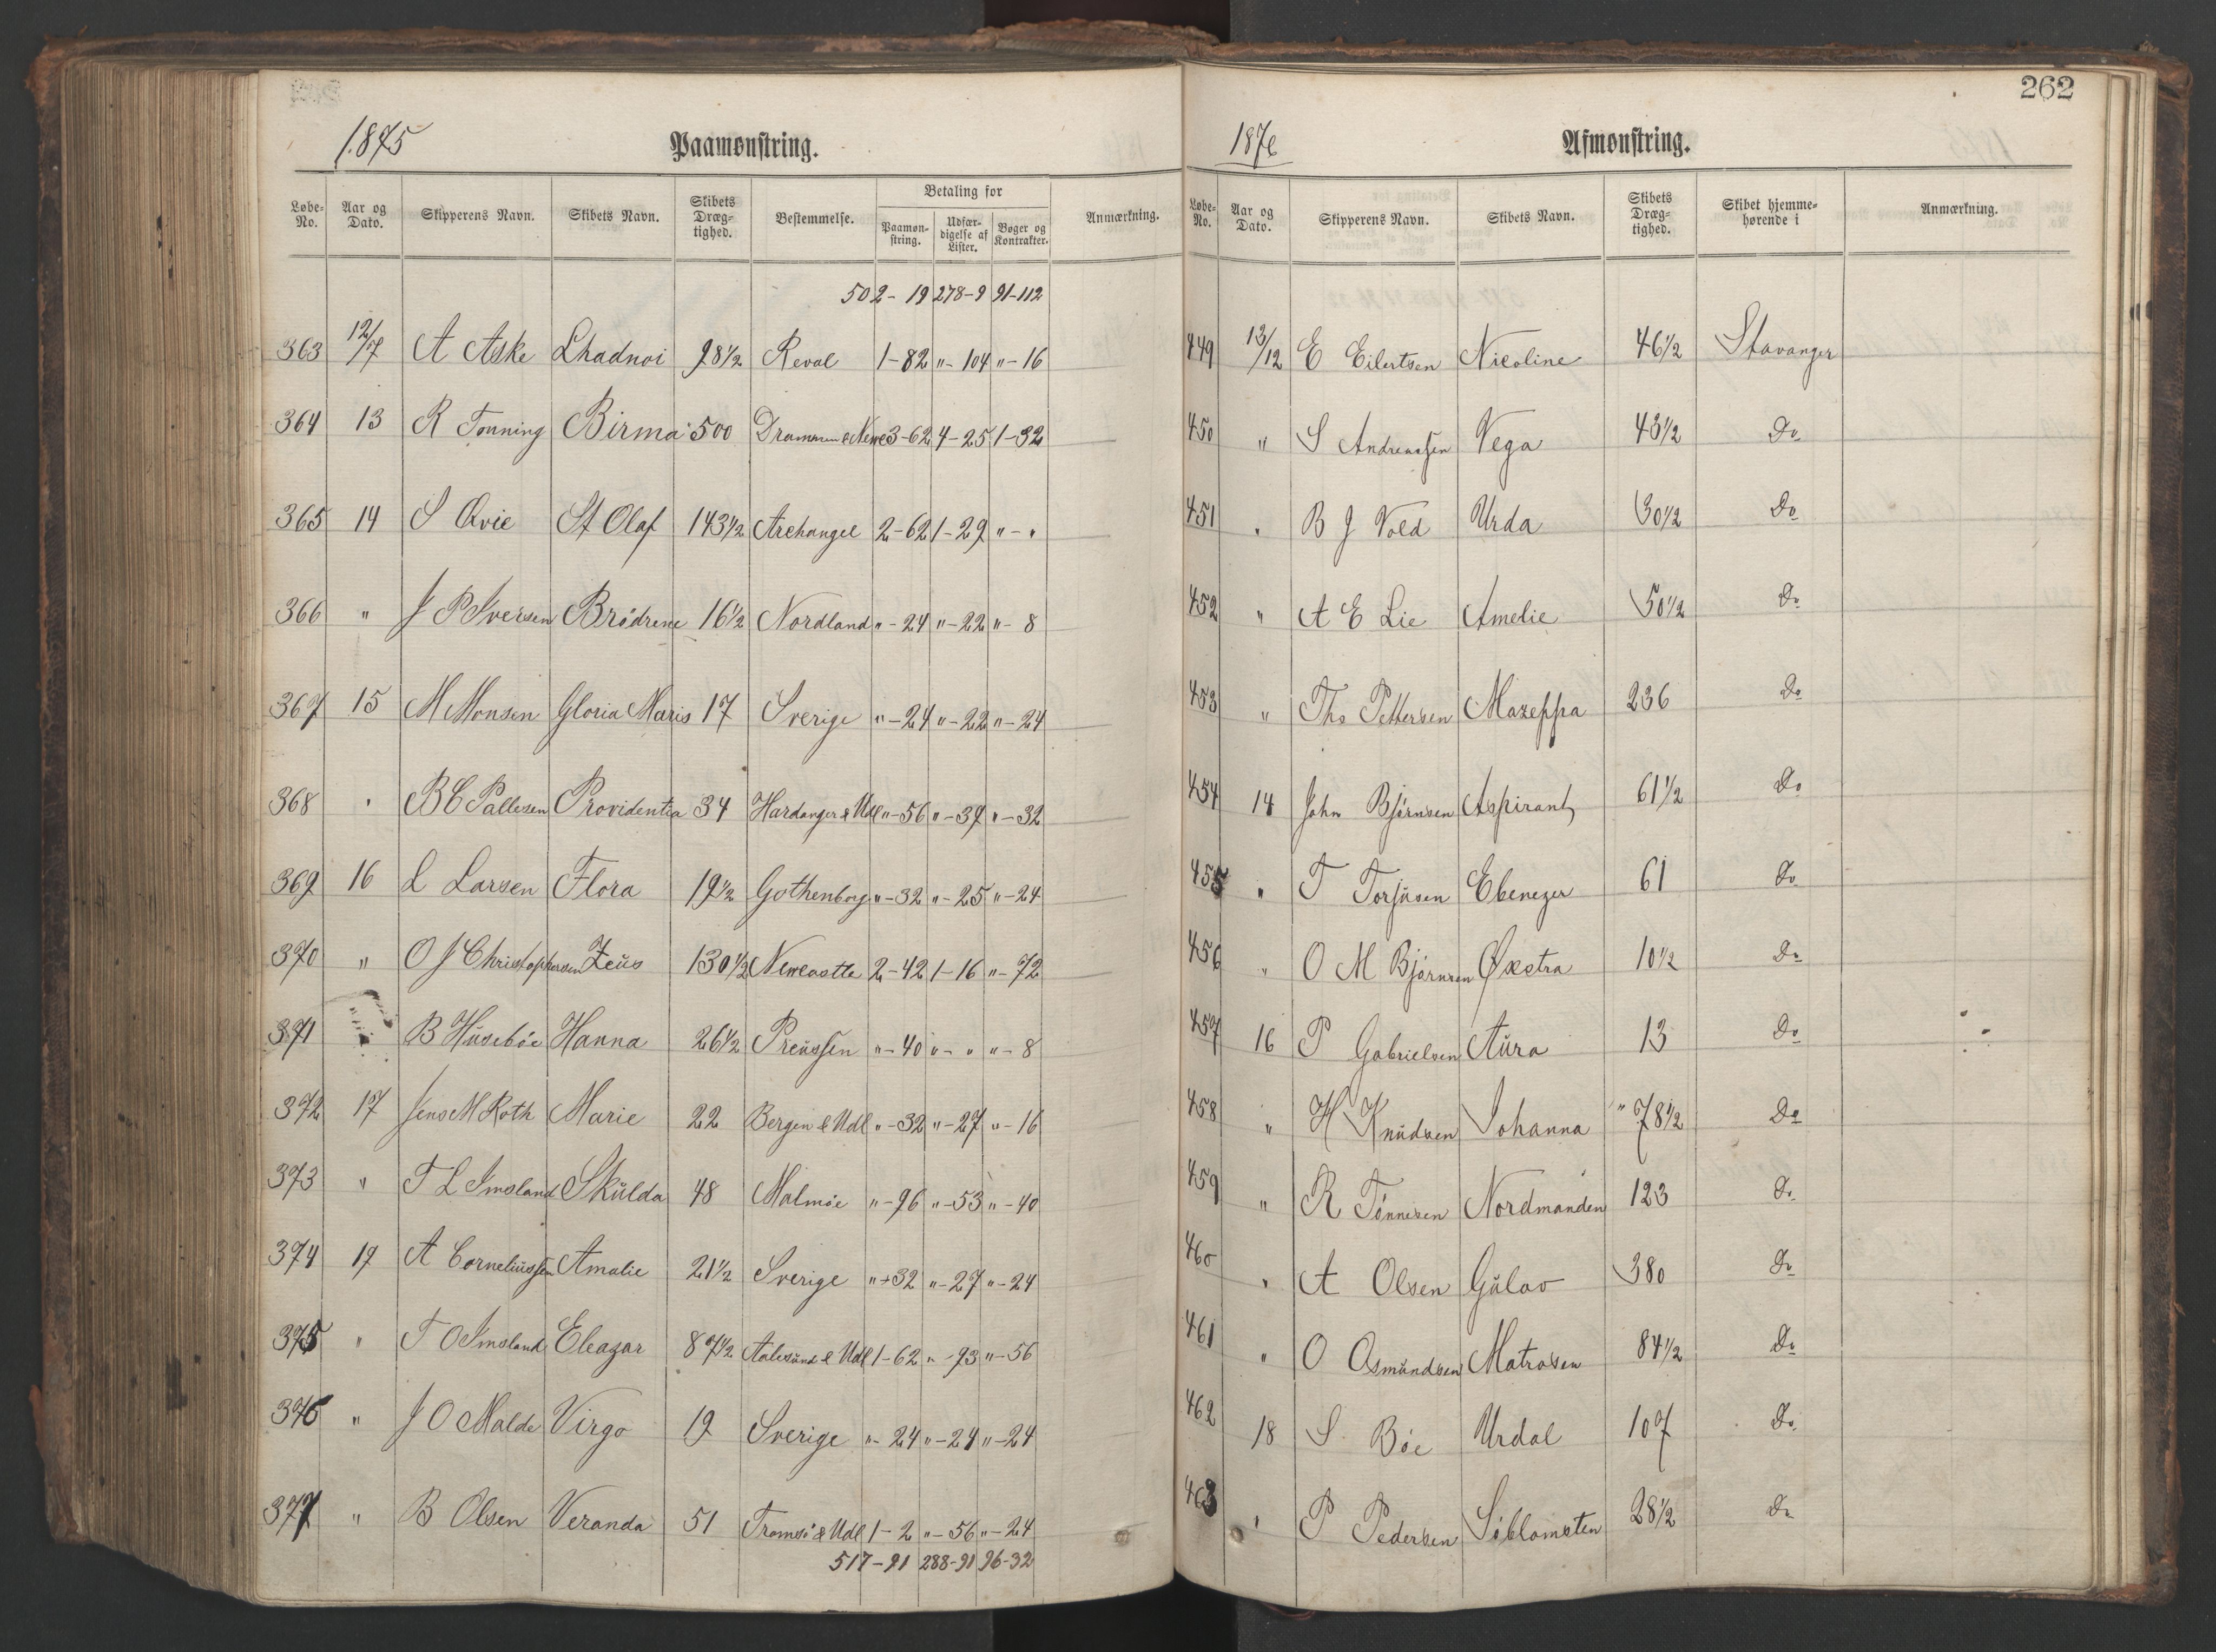 1875 Paamønstring.
Løbe-No. Aar og Dato. Skipperens Navn. Skibets Navn. Skibets Dræg-tighed. Bestemmelse. Betaling for Paamøn-string. Udfær-digelse af Lister. Bøger og Kontrakter. Anmærkning.
502-19 278-9 91-112
363 12/7 A Aske Lhadnoi 98 1/2 Reval 1-82 "-104 "-16
364 13 R Tonning Birma 500 Drammen & Newc 3-62 4-25 1-32
365 14 S Qvie St Olaf 143 1/2 Archangel 2-62 1-29 "-"
366 " J P Iversen Brödrene 16 1/2 Nordland "-24 "-22 "-8
367 15 M Monsen Gloria Maris 17 Sverige "-24 "-22 "-24
368 " B C Pallesen Providentia 34 Hardanger & Udl "-56 "-39 "-32
369 16 L Larsen Flora 19 1/2 Gothenborg "-32 "-25 "-24
370 " O J Christophersen Zeüs 130 1/2 Newcastle 2-42 1-16 "-72
371 " B Hüseböe Hanna 26 1/2 Preüssen "-40 "-" "-8
372 17 Jens M Roth Marie 22 Bergen & Udl "-32 "-27 "-16
373 " T L Imsland Skülda 48 Malmöe "-96 "-53 "-40
374 19 A Corneliüssen Amalie 21 1/2 Sverige "-32 "-27 "-24
375 " T O Imsland Eleazar 87 1/2 Aalesünd & Udl 1-62 "-93 "-56
376 " J O Malde Virgo 19 Sverige "-24 "-24 "-24
377 " B Olsen Veranda 51 Tromsö & Udl 1-2 "-56 "-24
517-91 288-91 96-32
262
1876 Afmønstring.
Løbe-No. Aar og Dato. Skipperens Navn. Skibets Navn. Skibets Dræg-tighed. Skibet hjemme-hørende i Anmærkning.
449 13/12 E Eilertsen Nicoline 46 1/2 Stavanger
450 " S Andreassen Vega 43 1/2 Do
451 " B J Vold Urda 30 1/2 Do
452 " A E Lie Amelie 50 1/2 Do
453 " Ths Pettersen Mazeppa 236 Do
454 14 John Björnsen Aspirant 61 1/2 Do
455 " T Torjüsen Ebenezer 61 Do
456 " O M Björnsen Øxstra 10 1/2 Do
457 16 P Gabrielsen Aüra 13 Do
458 " H Knüdsen Johanna 78 1/2 Do
459 " R Tönnesen Nordmanden 123 Do
460 " A Olsen Gülao 380 Do
461 " O Osmündsen Matrosen 84 1/2 Do
462 18 S Böe Urdal 107 Do
463 " P Pedersen Siblomsten 28 1/2 Do